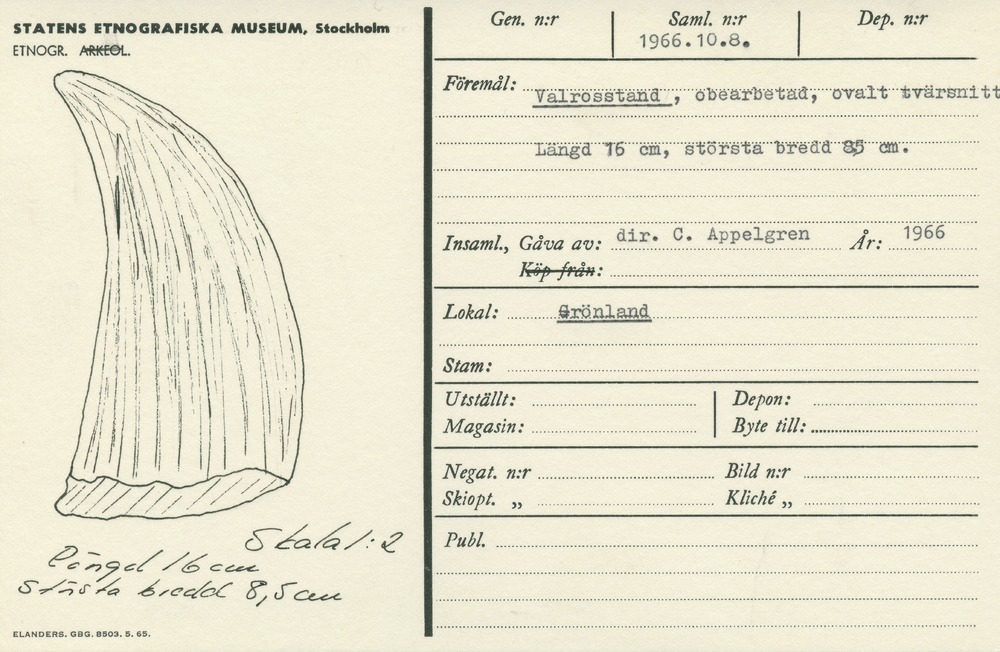 STATENS ETNOGRAFISKA MUSEUM, Stockholm
ETNOGR. ARKEOL.
Skala 1:2
Längd 16 cm
Största bredd 8,5 cm
ELANDERS. GBG. 8503. 5. 65.
Gen. n:r Saml. n:r Dep. n:r
1966.10.8.
Föremål: Valrosstand , obearbetad, ovalt tvärsnitt
Längd 16 cm, största bredd 8,5 cm.
Insaml., Gåva av: dir. C. Appelgren År: 1966
Köp från:
Lokal: Grönland
Stam:
Utställt: Depon:
Magasin: Byte till:
Negat. n:r Bild n:r
Skiopt. „ Kliché „
Publ.